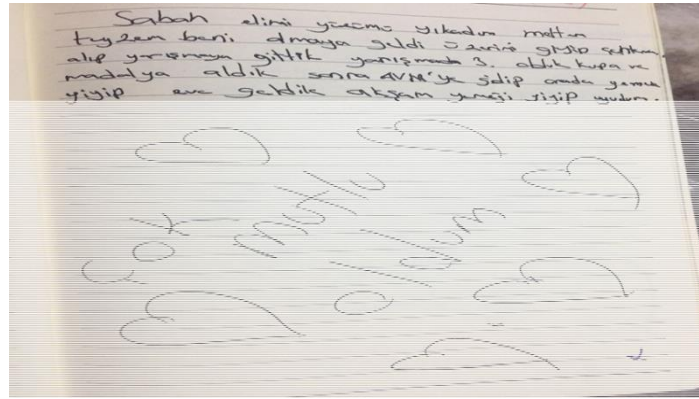 Sabah elimi yüzümü yıkadım
teyzem beni almaya geldi üzerimi giyip
alıp yarışmaya gittik yarışmada 3. oldik kupa ve
madalya aldik sonra AVM'ye gidip orada yemek
yiyip eve geldik akşam yemeği yiyip uyudum.
Çok mutlu
oldum